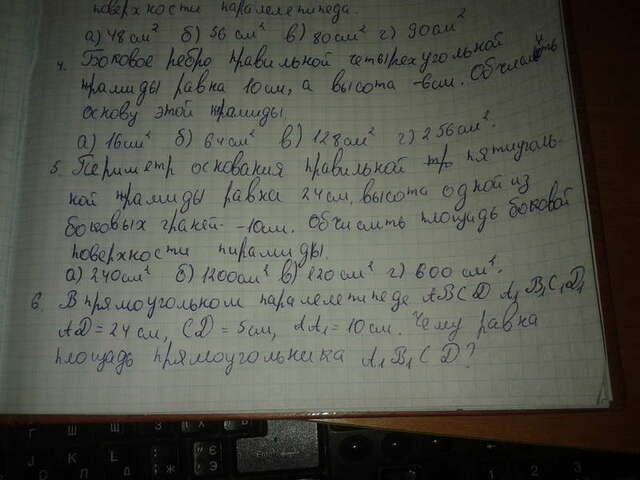 поверхности паралелепипеда.
а) 48 см² б) 56 см² в) 80 см² г) 90 см²
4. Боковое ребро правильной четырехугольной
пирамиды равна 10 см, а высота -6см. Обчислить
основу этой пирамиды.
а) 16 см² б) 64 см² в) 128 см² г) 256 см².
5. Периметр основания правильной пятиуголь-
ной пирамиды равна 24 см, высота одной из
боковых граней - 10см. Обчислить площадь боковой
поверхности пирамиды.
а) 240см² б) 1200см² в) 120 см² г) 600 см².
6. В прямоугольном паралелепипеде ABCD A₁B₁C₁D₁
AD = 24 см, CD = 5см, AA₁ = 10 см. Чему равна
площадь прямоугольника A₁B₁CD?
Г Ш Щ З Х Ї
Л Д Ж Є Enter
1 2 3